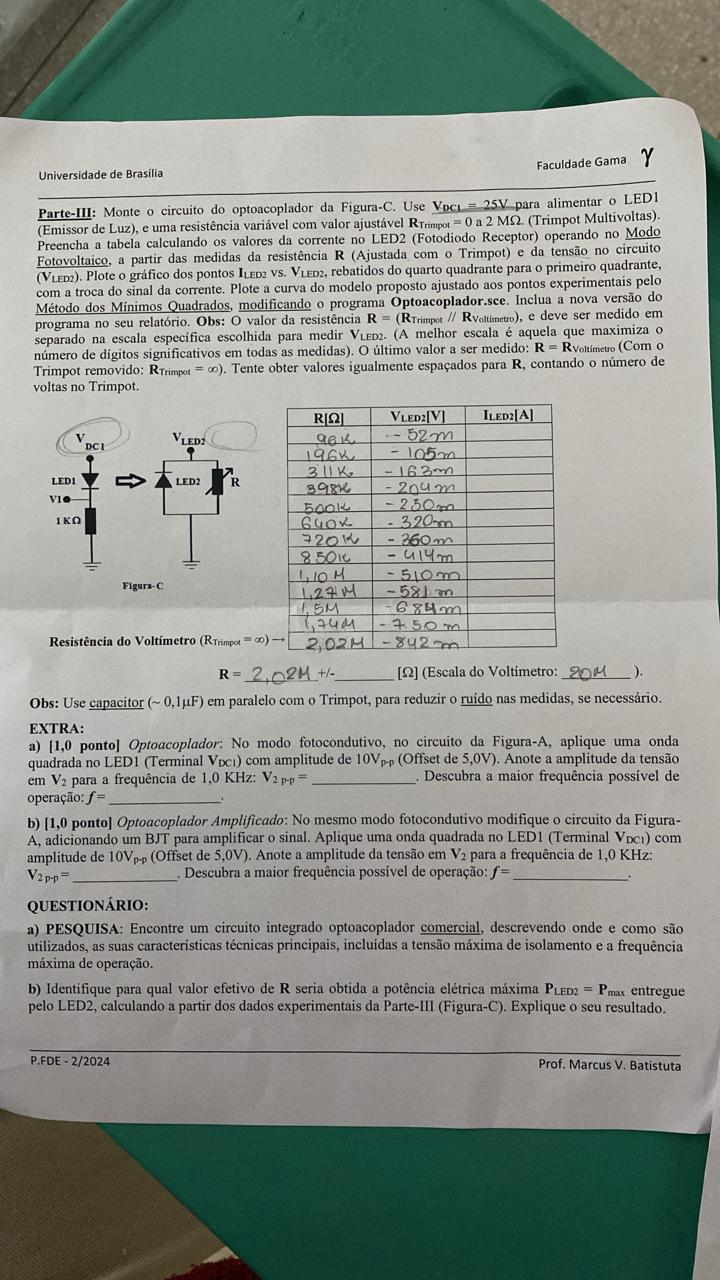 Universidade de Brasília
Faculdade Gama γ
Parte-III: Monte o circuito do optoacoplador da Figura-C. Use VDC1 = 25V para alimentar o LED1
(Emissor de Luz), e uma resistência variável com valor ajustável RTrimpot = 0 a 2 MΩ. (Trimpot Multivoltas).
Preencha a tabela calculando os valores da corrente no LED2 (Fotodiodo Receptor) operando no Modo
Fotovoltaico, a partir das medidas da resistência R (Ajustada com o Trimpot) e da tensão no circuito
(VLED2). Plote o gráfico dos pontos ILED2 vs. VLED2, rebatidos do quarto quadrante para o primeiro quadrante,
com a troca do sinal da corrente. Plote a curva do modelo proposto ajustado aos pontos experimentais pelo
Método dos Mínimos Quadrados, modificando o programa Optoacoplador.sce. Inclua a nova versão do
programa no seu relatório. Obs: O valor da resistência R = (RTrimpot // RVoltímetro), e deve ser medido em
separado na escala específica escolhida para medir VLED2. (A melhor escala é aquela que maximiza o
número de dígitos significativos em todas as medidas). O último valor a ser medido: R = RVoltímetro (Com o
Trimpot removido: RTrimpot = ∞). Tente obter valores igualmente espaçados para R, contando o número de
voltas no Trimpot.
VDC1
VLED2
LED1
LED2
R
V1
1KΩ
Figura-C
R[Ω] VLED2[V] ILED2[A]
96K -52m
196K -105m
311K -163m
398K -204m
500K -250m
640K -320m
720K -360m
850K -414m
1,10M -510m
1,27M -581m
1,5M -684m
1,74M -750m
Resistência do Voltímetro (RTrimpot = ∞) → 2,02M -842m
R = 2,02M +/-________ [Ω] (Escala do Voltímetro: 20M ).
Obs: Use capacitor (~ 0,1μF) em paralelo com o Trimpot, para reduzir o ruído nas medidas, se necessário.
EXTRA:
a) [1,0 ponto] Optoacoplador: No modo fotocondutivo, no circuito da Figura-A, aplique uma onda
quadrada no LED1 (Terminal VDC1) com amplitude de 10Vp-p (Offset de 5,0V). Anote a amplitude da tensão
em V2 para a frequência de 1,0 KHz: V2 p-p = ______________. Descubra a maior frequência possível de
operação: f= ______________.
b) [1,0 ponto] Optoacoplador Amplificado: No mesmo modo fotocondutivo modifique o circuito da Figura-
A, adicionando um BJT para amplificar o sinal. Aplique uma onda quadrada no LED1 (Terminal VDC1) com
amplitude de 10Vp-p (Offset de 5,0V). Anote a amplitude da tensão em V2 para a frequência de 1,0 KHz:
V2 p-p = ______________. Descubra a maior frequência possível de operação: f= ______________.
QUESTIONÁRIO:
a) PESQUISA: Encontre um circuito integrado optoacoplador comercial, descrevendo onde e como são
utilizados, as suas características técnicas principais, incluídas a tensão máxima de isolamento e a frequência
máxima de operação.
b) Identifique para qual valor efetivo de R seria obtida a potência elétrica máxima PLED2 = Pmax entregue
pelo LED2, calculando a partir dos dados experimentais da Parte-III (Figura-C). Explique o seu resultado.
P.FDE - 2/2024
Prof. Marcus V. Batistuta